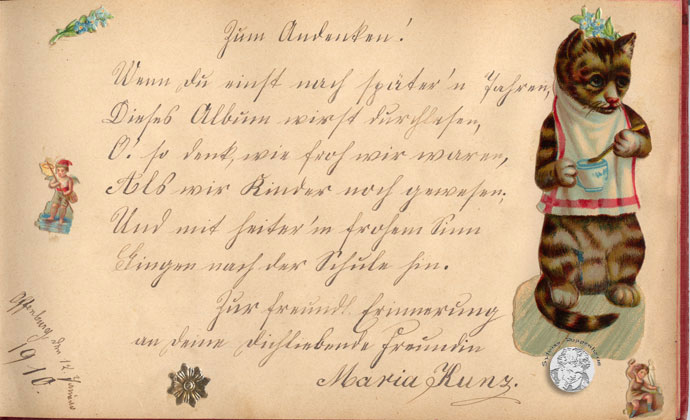 Zum Andenken!
Wenn du einst nach später'n Jahren,
Dieses Album wirst durchlesen,
O! so denk, wie froh wir waren,
Als wir Kinder noch gewesen;
Und mit heiter'm frohem Sinn
Gingen nach der Schule hin.
Zur freundl. Erinnerung
an deine dichliebende Freundin
Maria Kunz.
den 12.
1910.